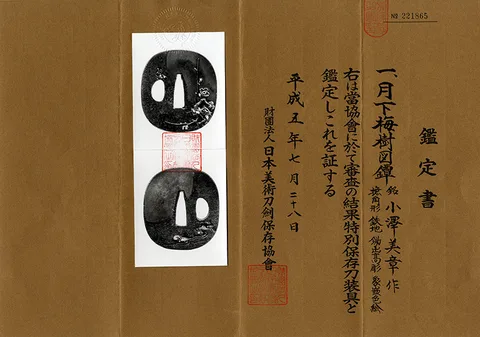 № 221865
鑑定書
一、月下梅樹図鐔
銘 小澤美章作
撫角形 鉄地 鋤出高彫 象嵌色絵
右は當協會に於て審査の結果特別保存刀装具と
鑑定しこれを証する
平成五年七月二十八日
財團法人日本美術刀劍保存協會